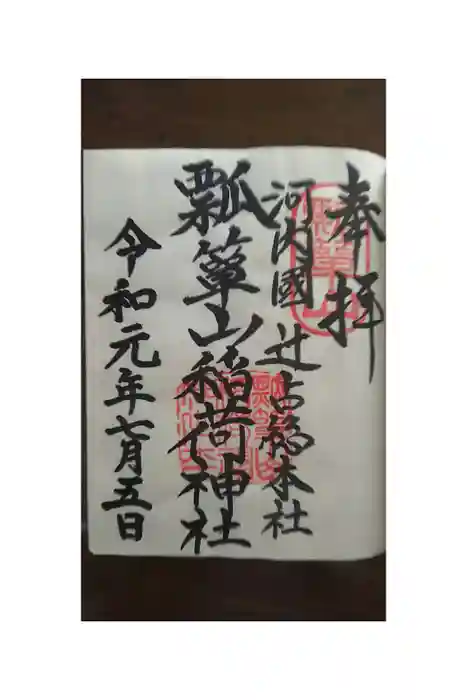 奉拝
河内國 辻占総本社
瓢箪山稲荷神社
令和元年七月五日
瓢箪山